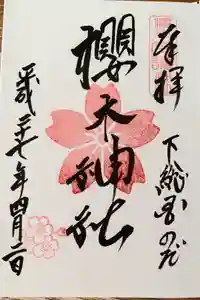 奉拝
下総国のだ
櫻木神社
平成二十七年四月二日